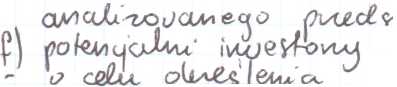 analizowanego preds
f) potencjalni inwestorzy
- w celu określenia